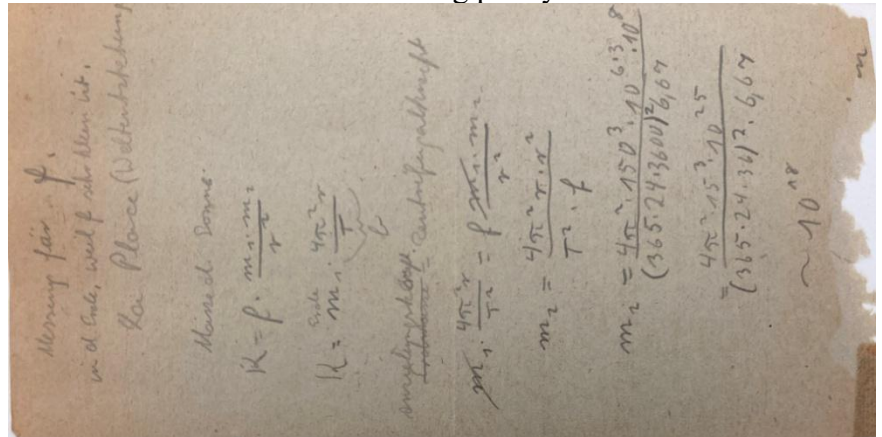 Messung für f.
in d. Erde, weil f sehr klein ist.
La Place (Weltentstehung
Masse d. Sonne.
K = f · m₁·m₂/r²
Erde
K = m₁ · 4π²r/T
b
Centrifugalkraft
m₁ · 4π²r/T² = f m₁·m₂/r²
m₂ = 4π²r·r²/T²·f
m₂ = 4π²·150³·10⁶·³·10⁸/(365·24·3600)²6,67
= 4π²·15³·10²⁵/(365·24·36)²·6,67
~10¹⁸